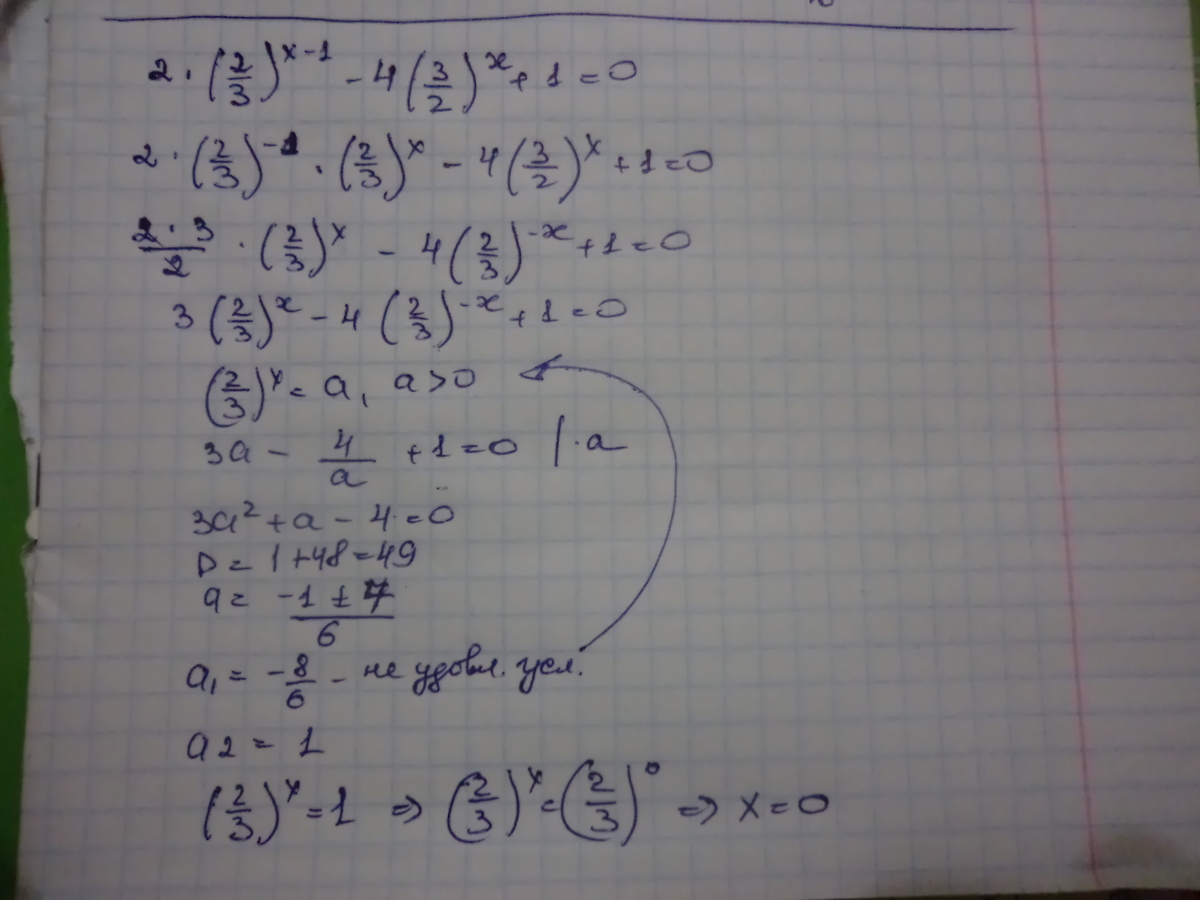 2 · (2/3)^(x-1) - 4(3/2)^x + 1 = 0
2 · (2/3)^(-1) · (2/3)^x - 4(3/2)^x + 1 = 0
2 · 3/2 · (2/3)^x - 4(2/3)^(-x) + 1 = 0
3(2/3)^x - 4(2/3)^(-x) + 1 = 0
(2/3)^x = a, a > 0
3a - 4/a + 1 = 0 | · a
3a² + a - 4 = 0
D = 1 + 48 = 49
a = (-1 ± 7)/6
a₁ = -8/6 - не удовл. усл.
a2 = 1
(2/3)^x = 1 ⇒ (2/3)^x = (2/3)^0 ⇒ x = 0